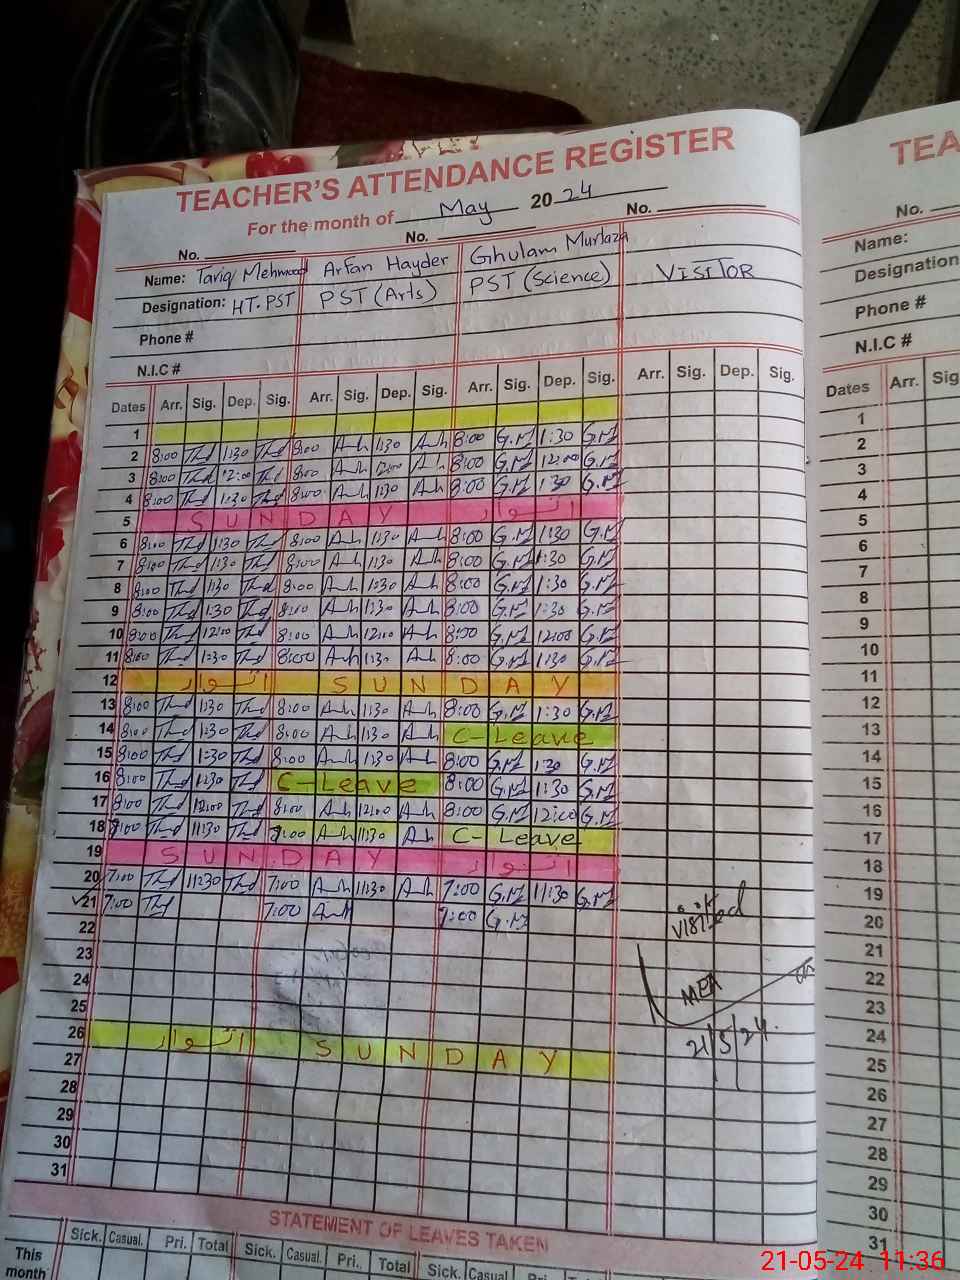 TEACHER'S ATTENDANCE REGISTER
For the month of May 2024
No. No. No.
Name: Tariq Mehmood Arfan Hayder Ghulam Murtaza VISITOR
Designation: HT.PST PST (Arts) PST (Science)
Phone #
N.I.C #
Dates Arr. Sig. Dep. Sig. Arr. Sig. Dep. Sig. Arr. Sig. Dep. Sig. Arr. Sig. Dep. Sig.
1
2 8:00 1:30 8:00 1:30 8:00 G.M 1:30 G.M
3 8:00 12:00 8:00 12:00 8:00 G.M 12:00 G.M
4 8:00 1:30 8:00 1:30 8:00 G.M 1:30 G.M
5 SUNDAY اتوار
6 8:00 1:30 8:00 1:30 8:00 G.M 1:30 G.M
7 8:00 1:30 8:00 1:30 8:00 G.M 1:30 G.M
8 8:00 1:30 8:00 1:30 8:00 G.M 1:30 G.M
9 8:00 1:30 8:00 1:30 8:00 G.M 1:30 G.M
10 8:00 12:00 8:00 12:00 8:00 G.M 12:00 G.M
11 8:00 1:30 8:00 1:30 8:00 G.M 1:30 G.M
12 اتوار SUNDAY
13 8:00 1:30 8:00 1:30 8:00 G.M 1:30 G.M
14 8:00 1:30 8:00 1:30 C-Leave
15 8:00 1:30 8:00 1:30 8:00 G.M 1:30 G.M
16 8:00 1:30 C-Leave 8:00 G.M 1:30 G.M
17 8:00 12:00 8:00 12:00 8:00 G.M 12:00 G.M
18 7:00 11:30 7:00 11:30 C-Leave
19 SUNDAY اتوار
20 7:00 11:30 7:00 11:30 7:00 G.M 11:30 G.M
21 7:00 7:00 7:00 G.M
22
23
24
25
26 اتوار SUNDAY
27
28
29
30
31
visited
MEA
21/5/24
STATEMENT OF LEAVES TAKEN
Sick. Casual. Pri. Total Sick. Casual. Pri. Total Sick. Casual
This month
TEA
No.
Name:
Designation
Phone #
N.I.C #
Dates Arr. Sig
1
2
3
4
5
6
7
8
9
10
11
12
13
14
15
16
17
18
19
20
21
22
23
24
25
26
27
28
29
30
31
21-05-24 11:36